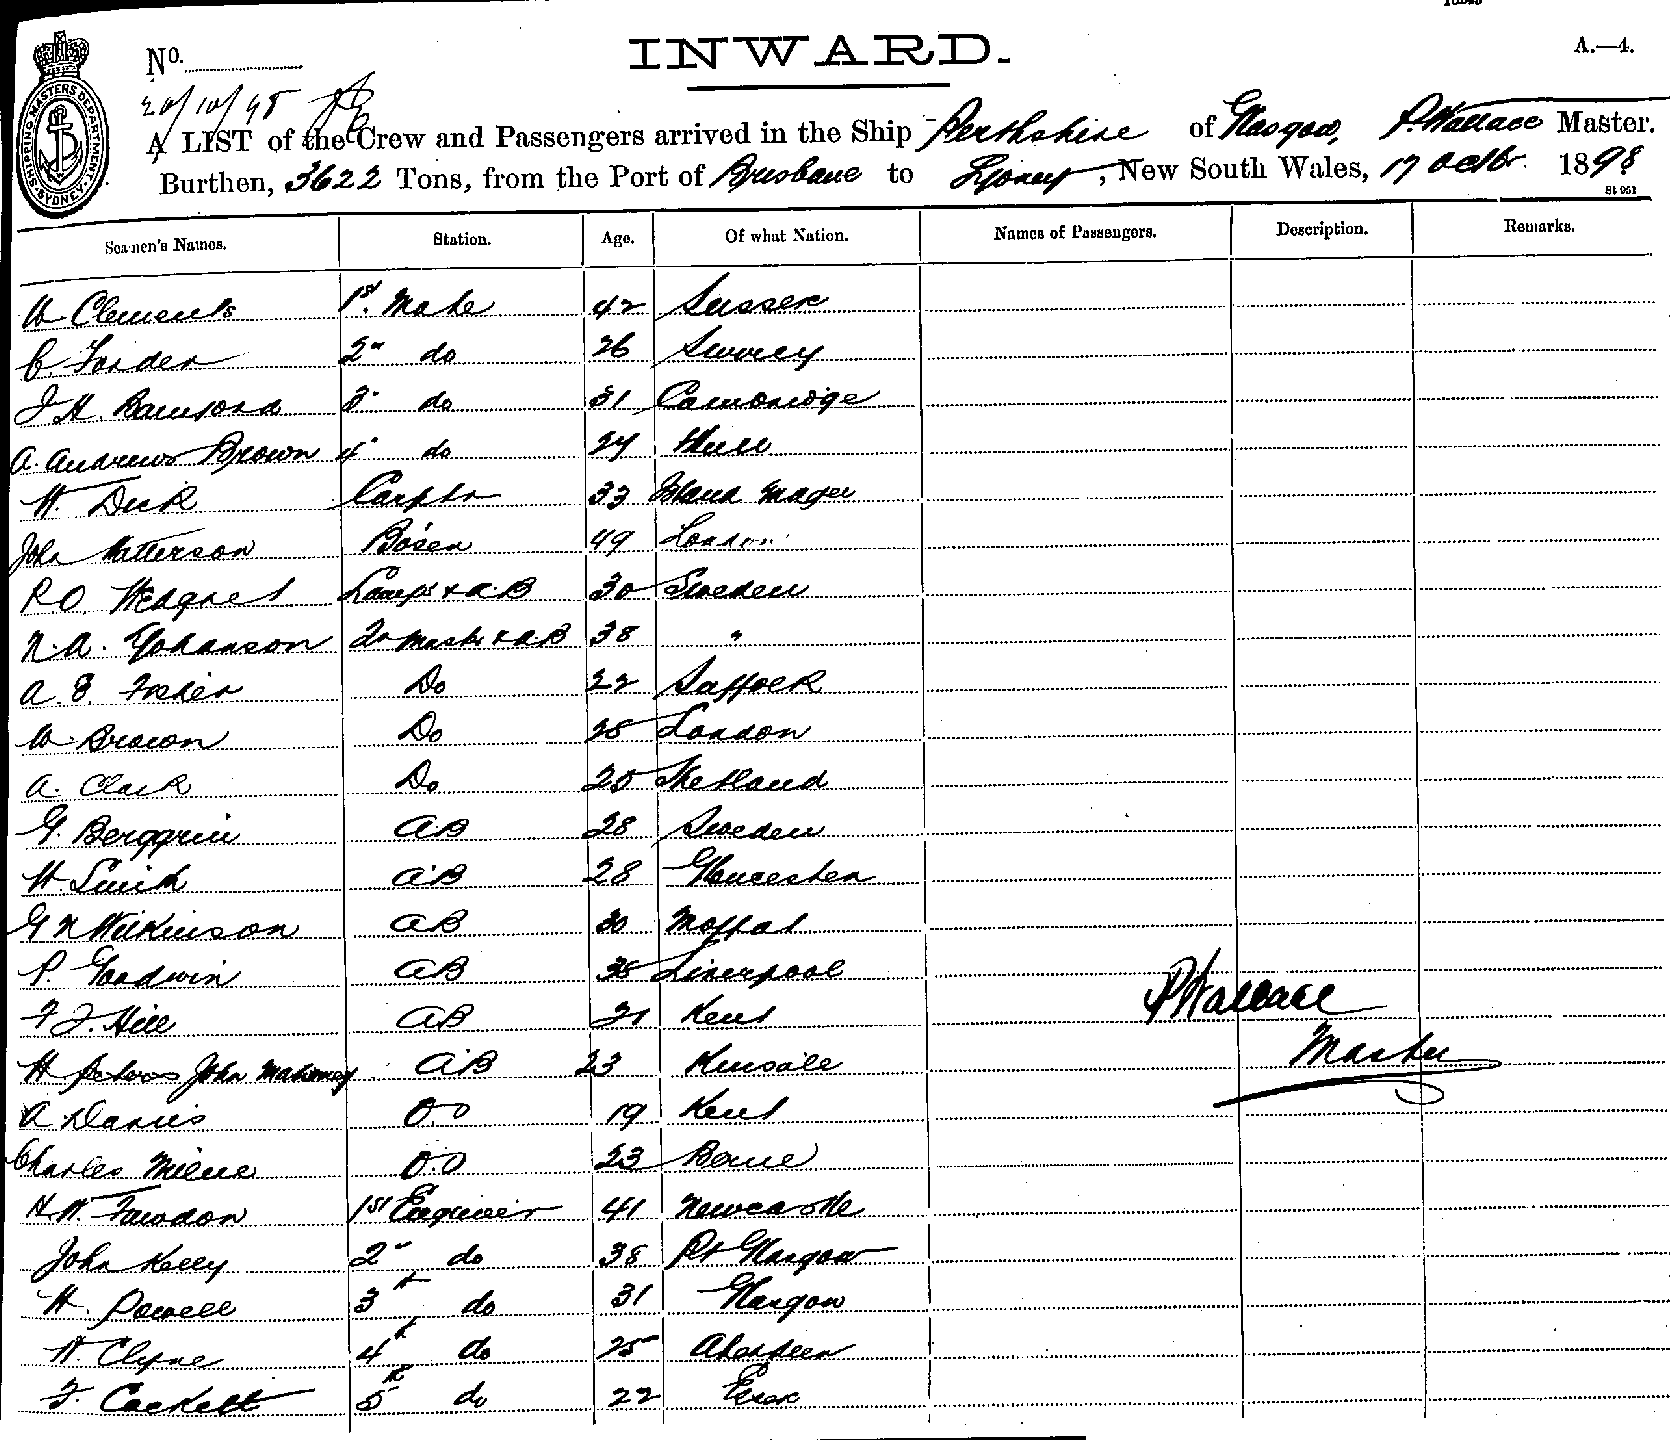 INWARD.
A.—4.
No.
20/10/98
A LIST of the Crew and Passengers arrived in the Ship Perthshire of Glasgow, P. Wallace Master.
Burthen, 3622 Tons, from the Port of Brisbane to Sydney, New South Wales, 17 Octbr 1898
SHIPPING MASTERS DEPARTMENT SYDNEY
Seamen's Names. Station. Age. Of what Nation. Names of Passengers. Description. Remarks.
W Clements 1st. Mate 42 Sussex
C. Forder 2" do 26 Surrey
J H. 3" do 31 Cambridge
A. Andrews Brown 4" do 27 Hull
W. Dick Carptr 33 Island Magee
John Bosen 49 London
R O. Lamps & AB 30 Sweden
N. A. Yohanson Qr Master & AB 38 "
A. E. Fisher Do 22 Suffolk
W. Brown Do 25 London
A. Clark Do 20 Shetland
G. Berggrin AB 28 Sweden
H. Smith AB 28 Gloucester
G N Wilkinson AB 30 Moffat
P. Goodwin AB 35 Liverpool
F J. Hill AB 21 Kent
P Wallace
H John Mahoney AB 23 Kinsale
Master
A Davies OS 19 Kent
Charles Milne OS 23
H. W. Fawdon 1st Engineer 41 Newcastle
John Kelly 2" do 38 Pt Glasgow
H. Powell 3 do 31 Glasgow
W. Clyne 4 do 25 Aberdeen
F. Cackett 5 do 22 Essex